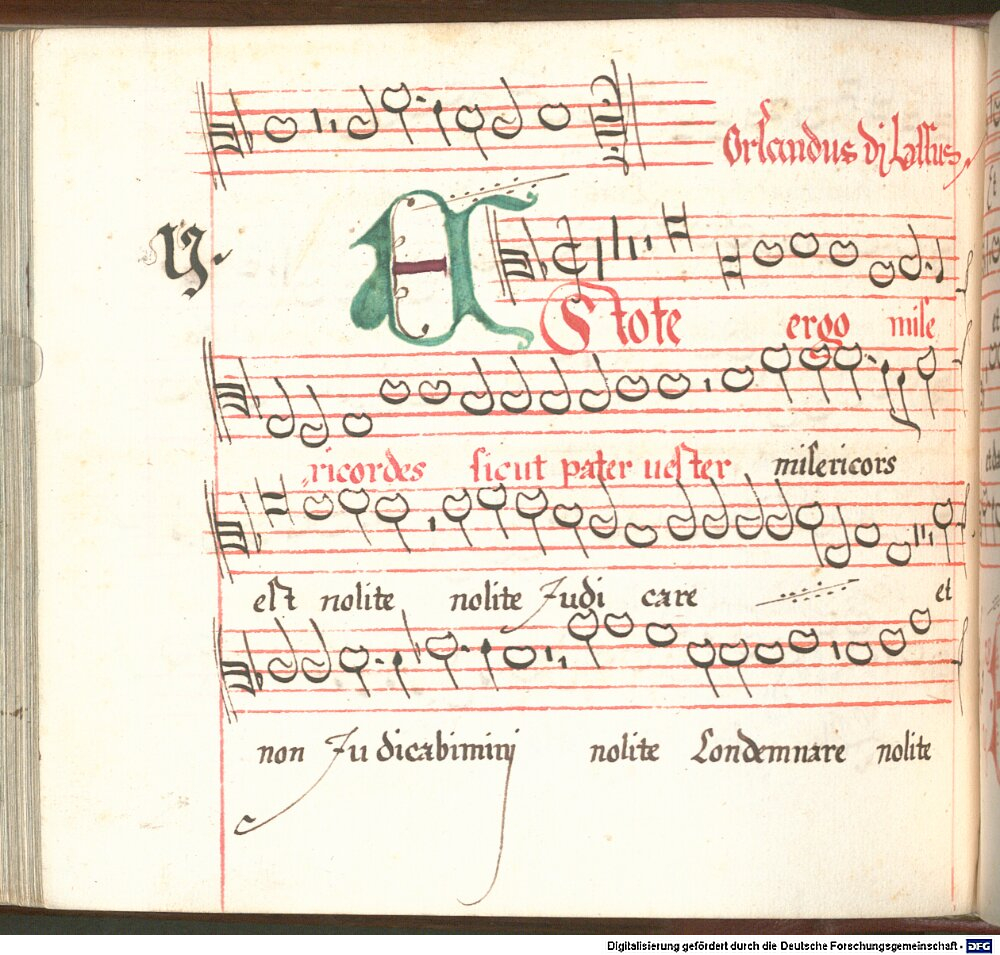 Orlandus di Lassus,
EStote ergo mise
ricordes sicut pater uester misericors
est nolite nolite Judi care et
non Judicabiminj nolite Condemnare nolite
Digitalisierung gefördert durch die Deutsche Forschungsgemeinschaft - DFG